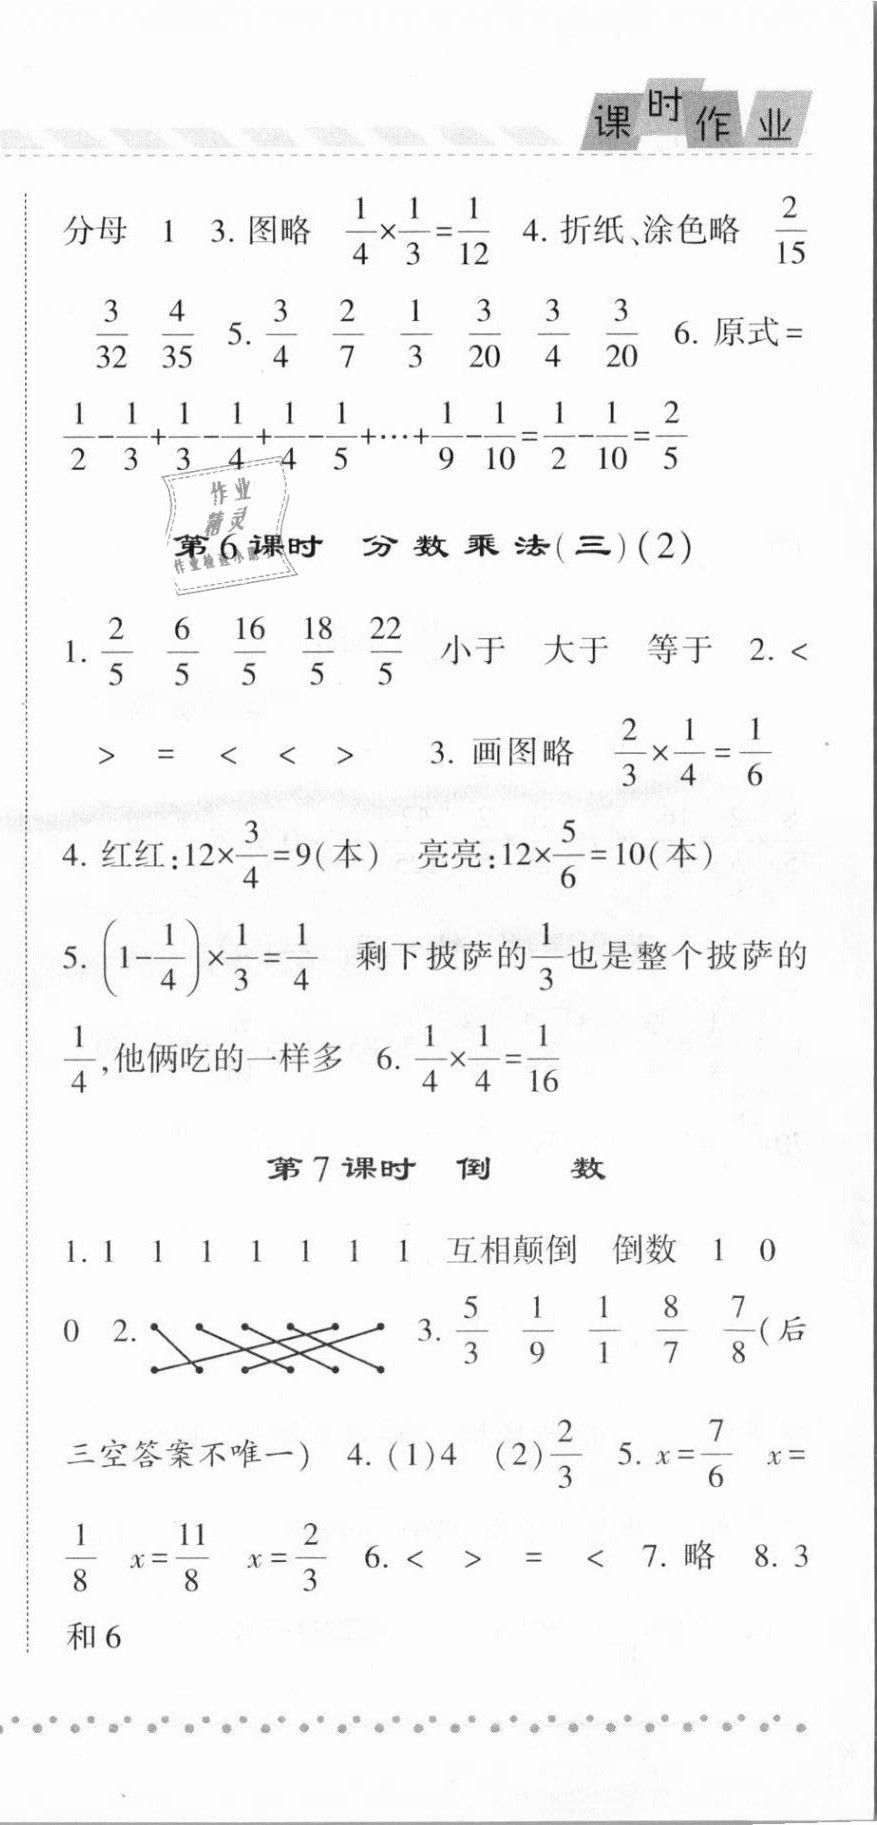 课时作业
分母 1 3. 图略 1/4×1/3=1/12 4. 折纸、涂色略 2/15
3/32 4/35 5. 3/4 2/7 1/3 3/20 3/4 3/20 6. 原式=
1/2-1/3+1/3-1/4+1/4-1/5+…+1/9-1/10=1/2-1/10=2/5
作业
精灵
第6课时 分数乘法(三)(2)
1. 2/5 6/5 16/5 18/5 22/5 小于 大于 等于 2. <
> = < < > 3. 画图略 2/3×1/4=1/6
4. 红红:12×3/4=9(本) 亮亮:12×5/6=10(本)
5. (1-1/4)×1/3=1/4 剩下披萨的1/3也是整个披萨的
1/4,他俩吃的一样多 6. 1/4×1/4=1/16
第7课时 倒 数
1. 1 1 1 1 1 1 1 互相颠倒 倒数 1 0
0 2. 3. 5/3 1/9 1/1 8/7 7/8(后
三空答案不唯一) 4. (1)4 (2)2/3 5. x=7/6 x=
1/8 x=11/8 x=2/3 6. < > = < 7. 略 8. 3
和6